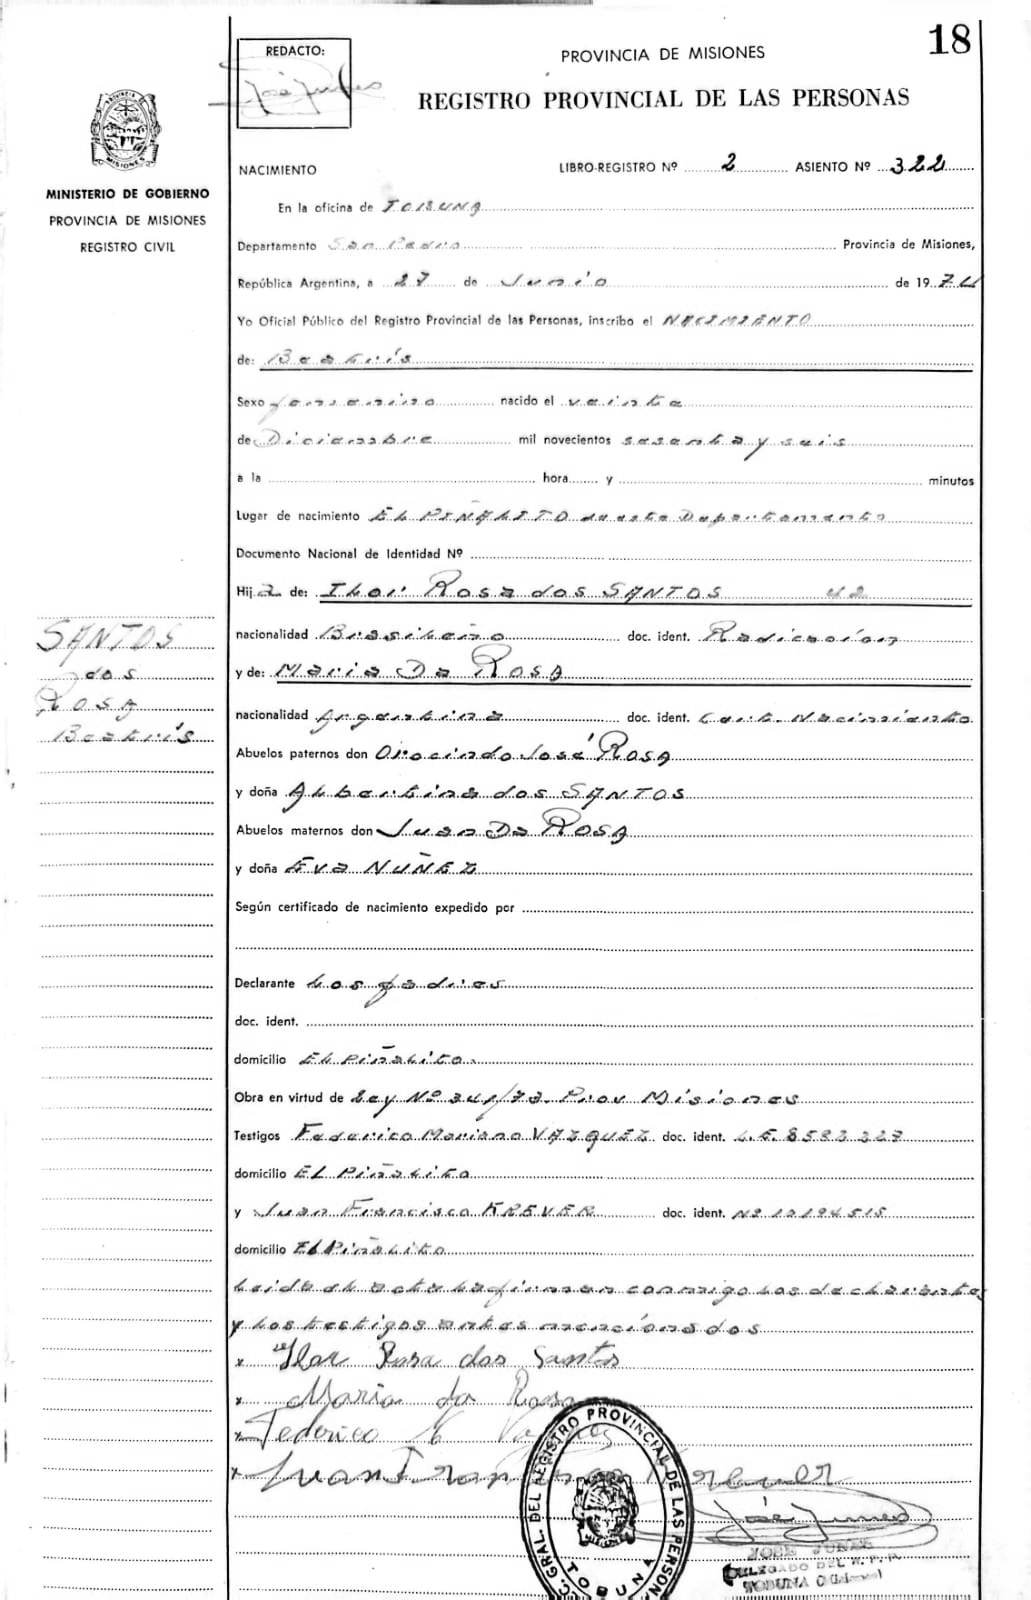 18
REDACTO:
PROVINCIA DE MISIONES
REGISTRO PROVINCIAL DE LAS PERSONAS
MINISTERIO DE GOBIERNO
PROVINCIA DE MISIONES
REGISTRO CIVIL
NACIMIENTO LIBRO-REGISTRO Nº 2 ASIENTO Nº 322
En la oficina de TOBUNA
Departamento San Pedro Provincia de Misiones,
República Argentina, a 27 de Junio de 1974
Yo Oficial Público del Registro Provincial de las Personas, inscribo el NACIMIENTO
de: Beatrís
Sexo femenino nacido el veinte
de Diciembre mil novecientos sesenta y seis
a la hora y minutos
Lugar de nacimiento EL PIÑALITO de este Departamento
Documento Nacional de Identidad Nº
Hija de: Ilor Rosa dos SANTOS
nacionalidad Brasileño doc. ident. Radicación
y de: Maria Da Rosa
nacionalidad Argentina doc. ident. Cert. Nacimiento
Abuelos paternos don Orocindo José Rosa
y doña Albertina dos SANTOS
Abuelos maternos don Juan Da Rosa
y doña Eva NUÑEZ
Según certificado de nacimiento expedido por
Declarante Los padres
doc. ident.
domicilio El Piñalito.
Obra en virtud de Ley Nº 341/73. Prov Misiones
Testigos Federico Mariano VAZQUEZ doc. ident. L.E. 8593 227
domicilio El Piñalito
y Juan Francisco KREVER doc. ident. Nº 10194515
domicilio El Piñalito
Leida el acta la firman conmigo los declarantes
y los testigos antes mencionados
x Ilor Rosa dos Santos
x Maria da Rosa
x Federico
x Juan Fran
SANTOS
dos
Rosa
Beatrís
GRAL. DEL REGISTRO PROVINCIAL DE LAS PERSONA
MISIONES
TOBUNA
DELEGADO DEL R. P. P.
TOBUNA (Misiones)